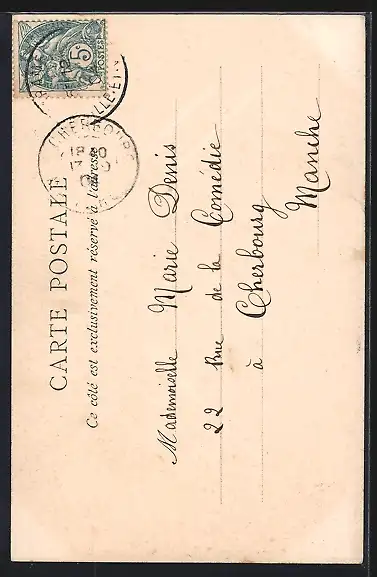 CARTE POSTALE
Ce côté est exclusivement réservé à l'adresse
5c
POSTES
CHERBOURG
Mademoiselle Marie Denis
22 Rue de la Comédie
à Cherbourg
Manche